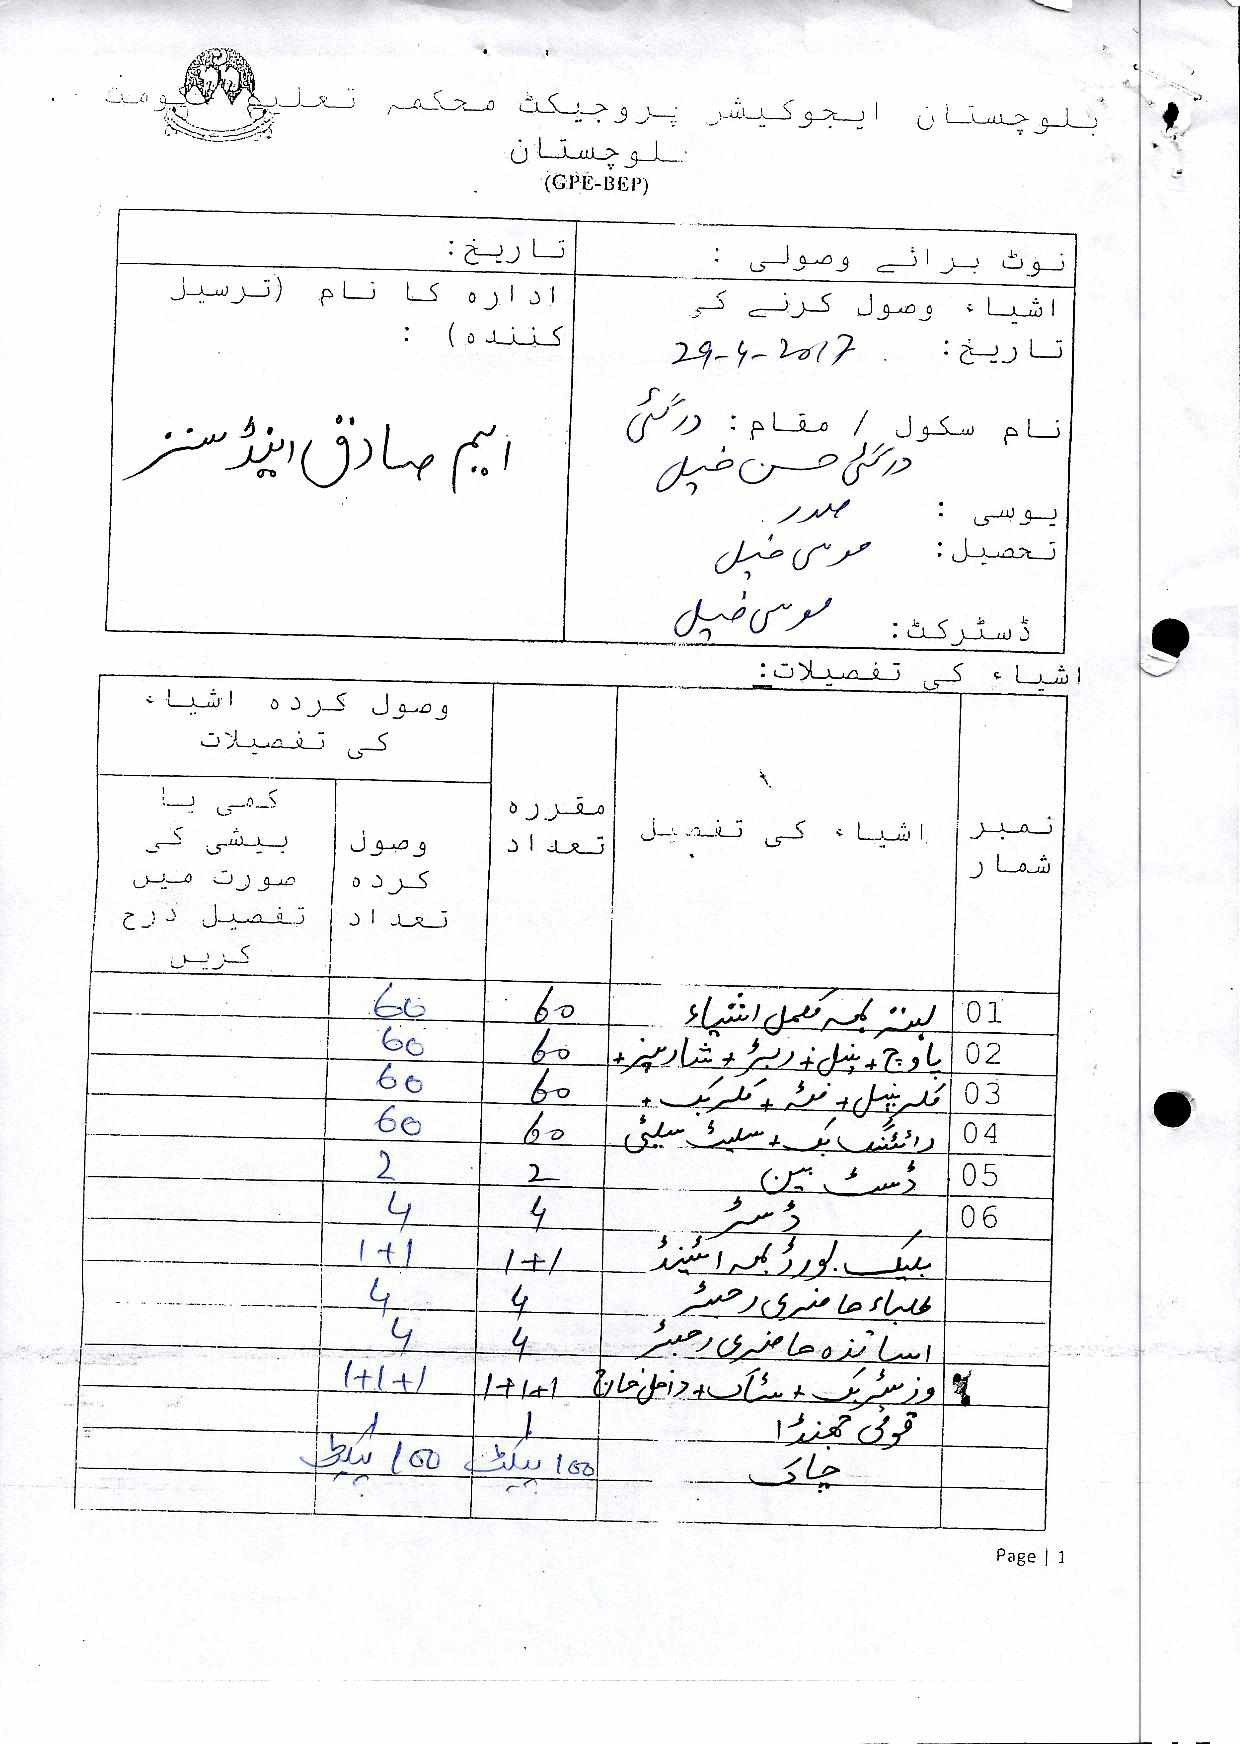 بلوچستان ایجوکیشر پروجیکٹ محکمہ تعلیم حکومت
بلوچستان
(GPE-BEP)
نوٹ برائے وصولی :
تاریخ:
اشیاء وصول کرنے کی
تاریخ: 29-4-2017
ادارہ کا نام (ترسیل
کنندہ) :
ایم صادق اینڈ سنز
نام سکول / مقام: درگئی
درگئی حسن خیل
یوسی : صدر
تحصیل: موسی خیل
ڈسٹرکٹ: موسی خیل
اشیاء کی تفصیلات:
نمبر شمار
اشیاء کی تفصیل
مقررہ تعداد
وصول کردہ اشیاء
کی تفصیلات
وصول کردہ تعداد
کمی یا
بیشی کی
صورت میں
تفصیل درج
کریں
01 بستہ بمعہ مکمل اشیاء 60 60
02 پاوچ + پنسل + ربڑ + شارپنر + 60 60
03 کلر پنسل + فٹہ + کلر بک + 60 60
04 رائٹنگ بک + سلیٹ سلیٹی 60 60
05 ڈسٹ بین 2 2
06 ڈسٹر 4 4
بلیک بورڈ بمعہ اسٹینڈ 1+1 1+1
طلباء حاضری رجسٹر 4 4
اساتذہ حاضری رجسٹر 4 4
وزیٹر بک + سٹاک + داخل خارج 1+1+1 1+1+1
قومی جھنڈا 1 1
چاک 100 پیکٹ 100 پیکٹ
Page | 1